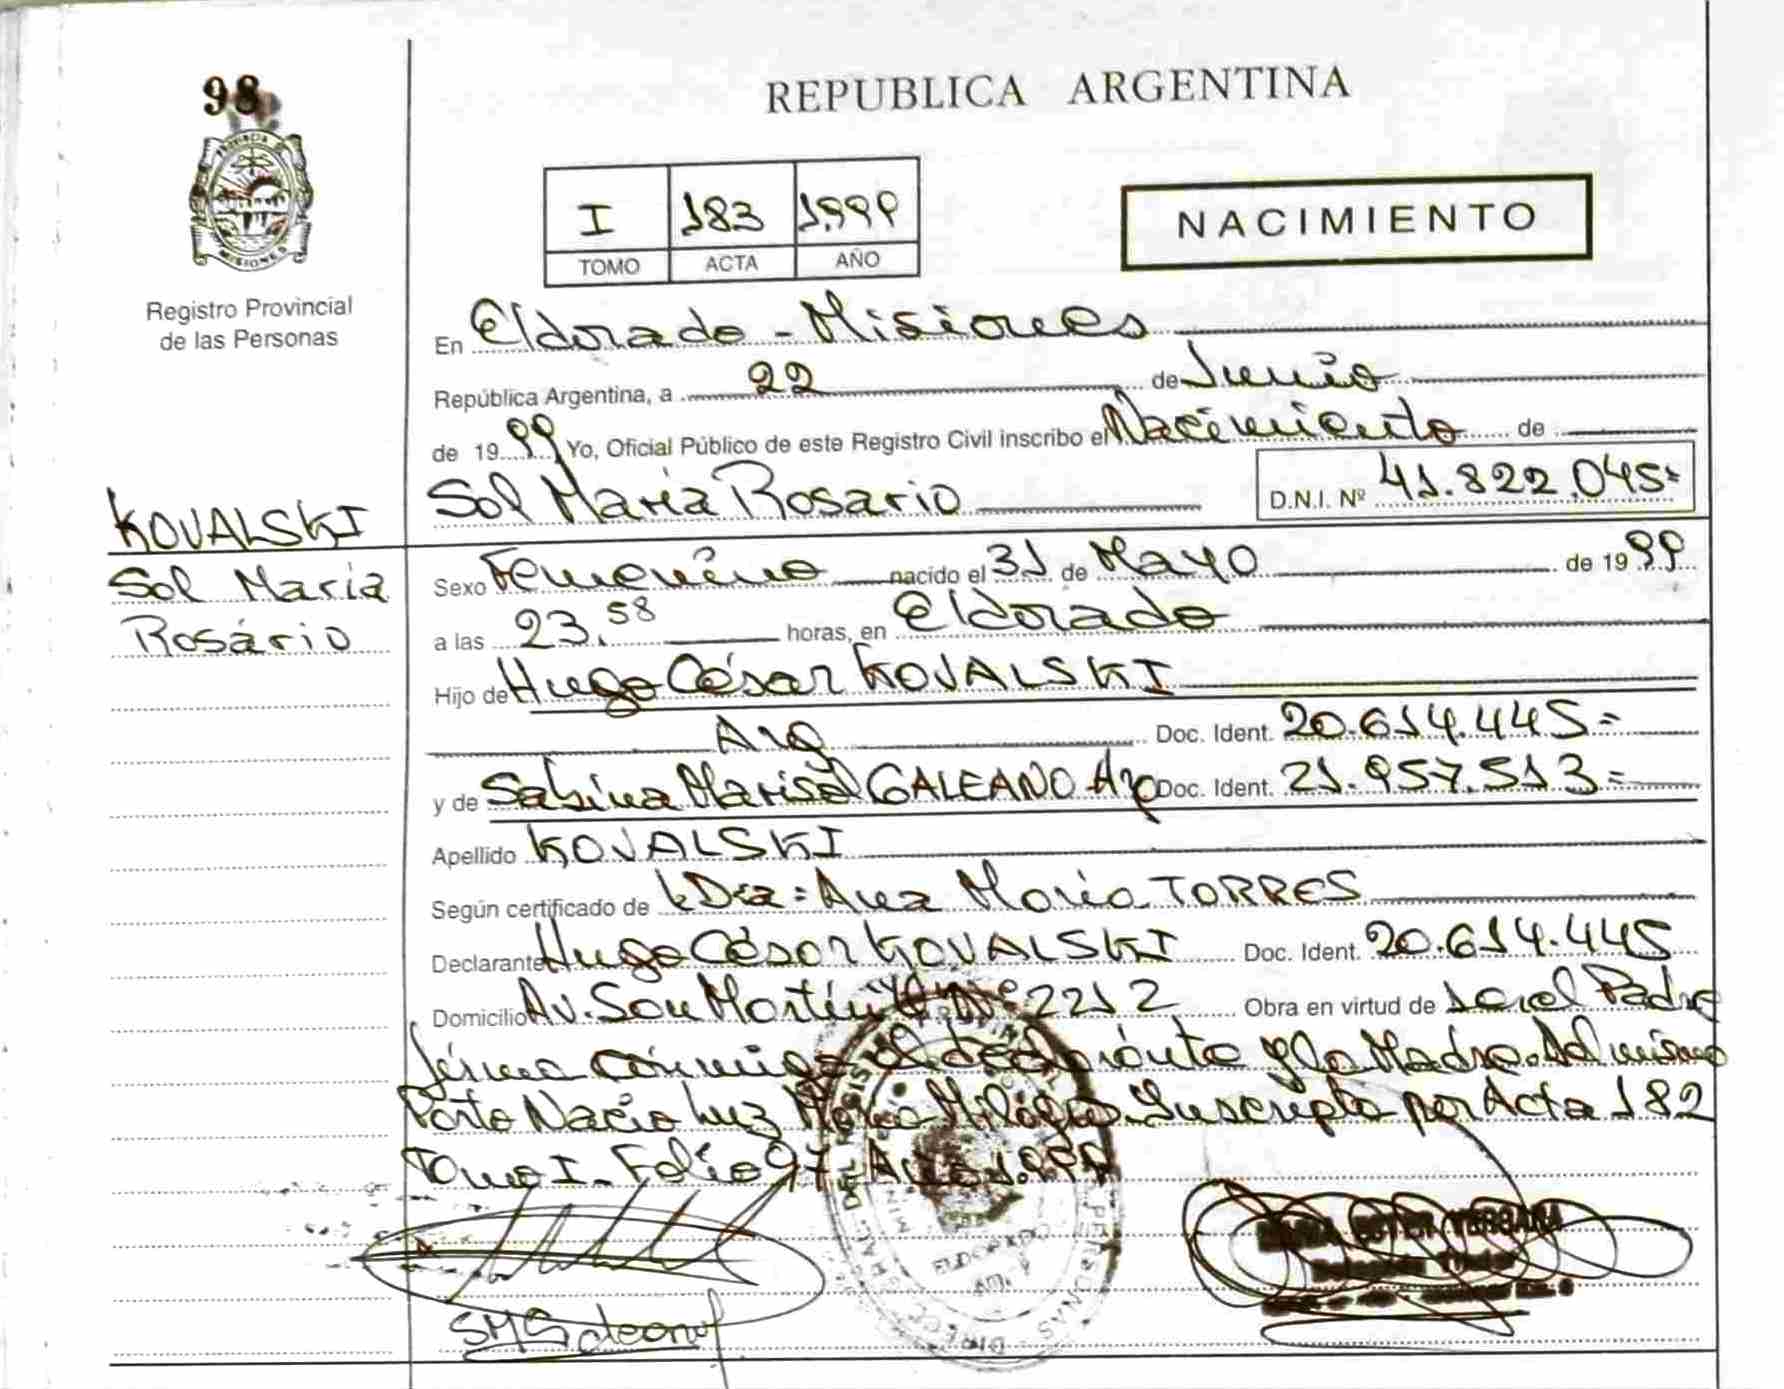 98
PROVINCIA DE
MISIONES
Registro Provincial
de las Personas
REPUBLICA ARGENTINA
I 183 1.999
TOMO ACTA AÑO
NACIMIENTO
En Eldorado - Misiones
República Argentina, a 22 de Junio
de 1999 Yo, Oficial Público de este Registro Civil inscribo el Nacimiento de
Sol María Rosario D.N.I. Nº 41.822.045=
KOVALSKI
Sol María
Rosário
Sexo Femenino nacido el 31 de Mayo de 1999
a las 23,58 horas, en Eldorado
Hijo de Hugo César KOVALSKI
Arg Doc. Ident. 20.614.445=
y de Sabina Marisol GALEANO Arg Doc. Ident. 21.957.513=
Apellido KOVALSKI
Según certificado de Dra: Ana María TORRES
Declarante Hugo César KOVALSKI Doc. Ident. 20.614.445
Domicilio Av. San Martín Nº 2212 Obra en virtud de Padre
firma el declarante y la Madre. Del mismo
Parto Nacio Luz María Milagros Inscripta por Acta 182
Tomo I - Folio 97 - Año 1.999
ELDORADO
SMGaleano
VERGARA